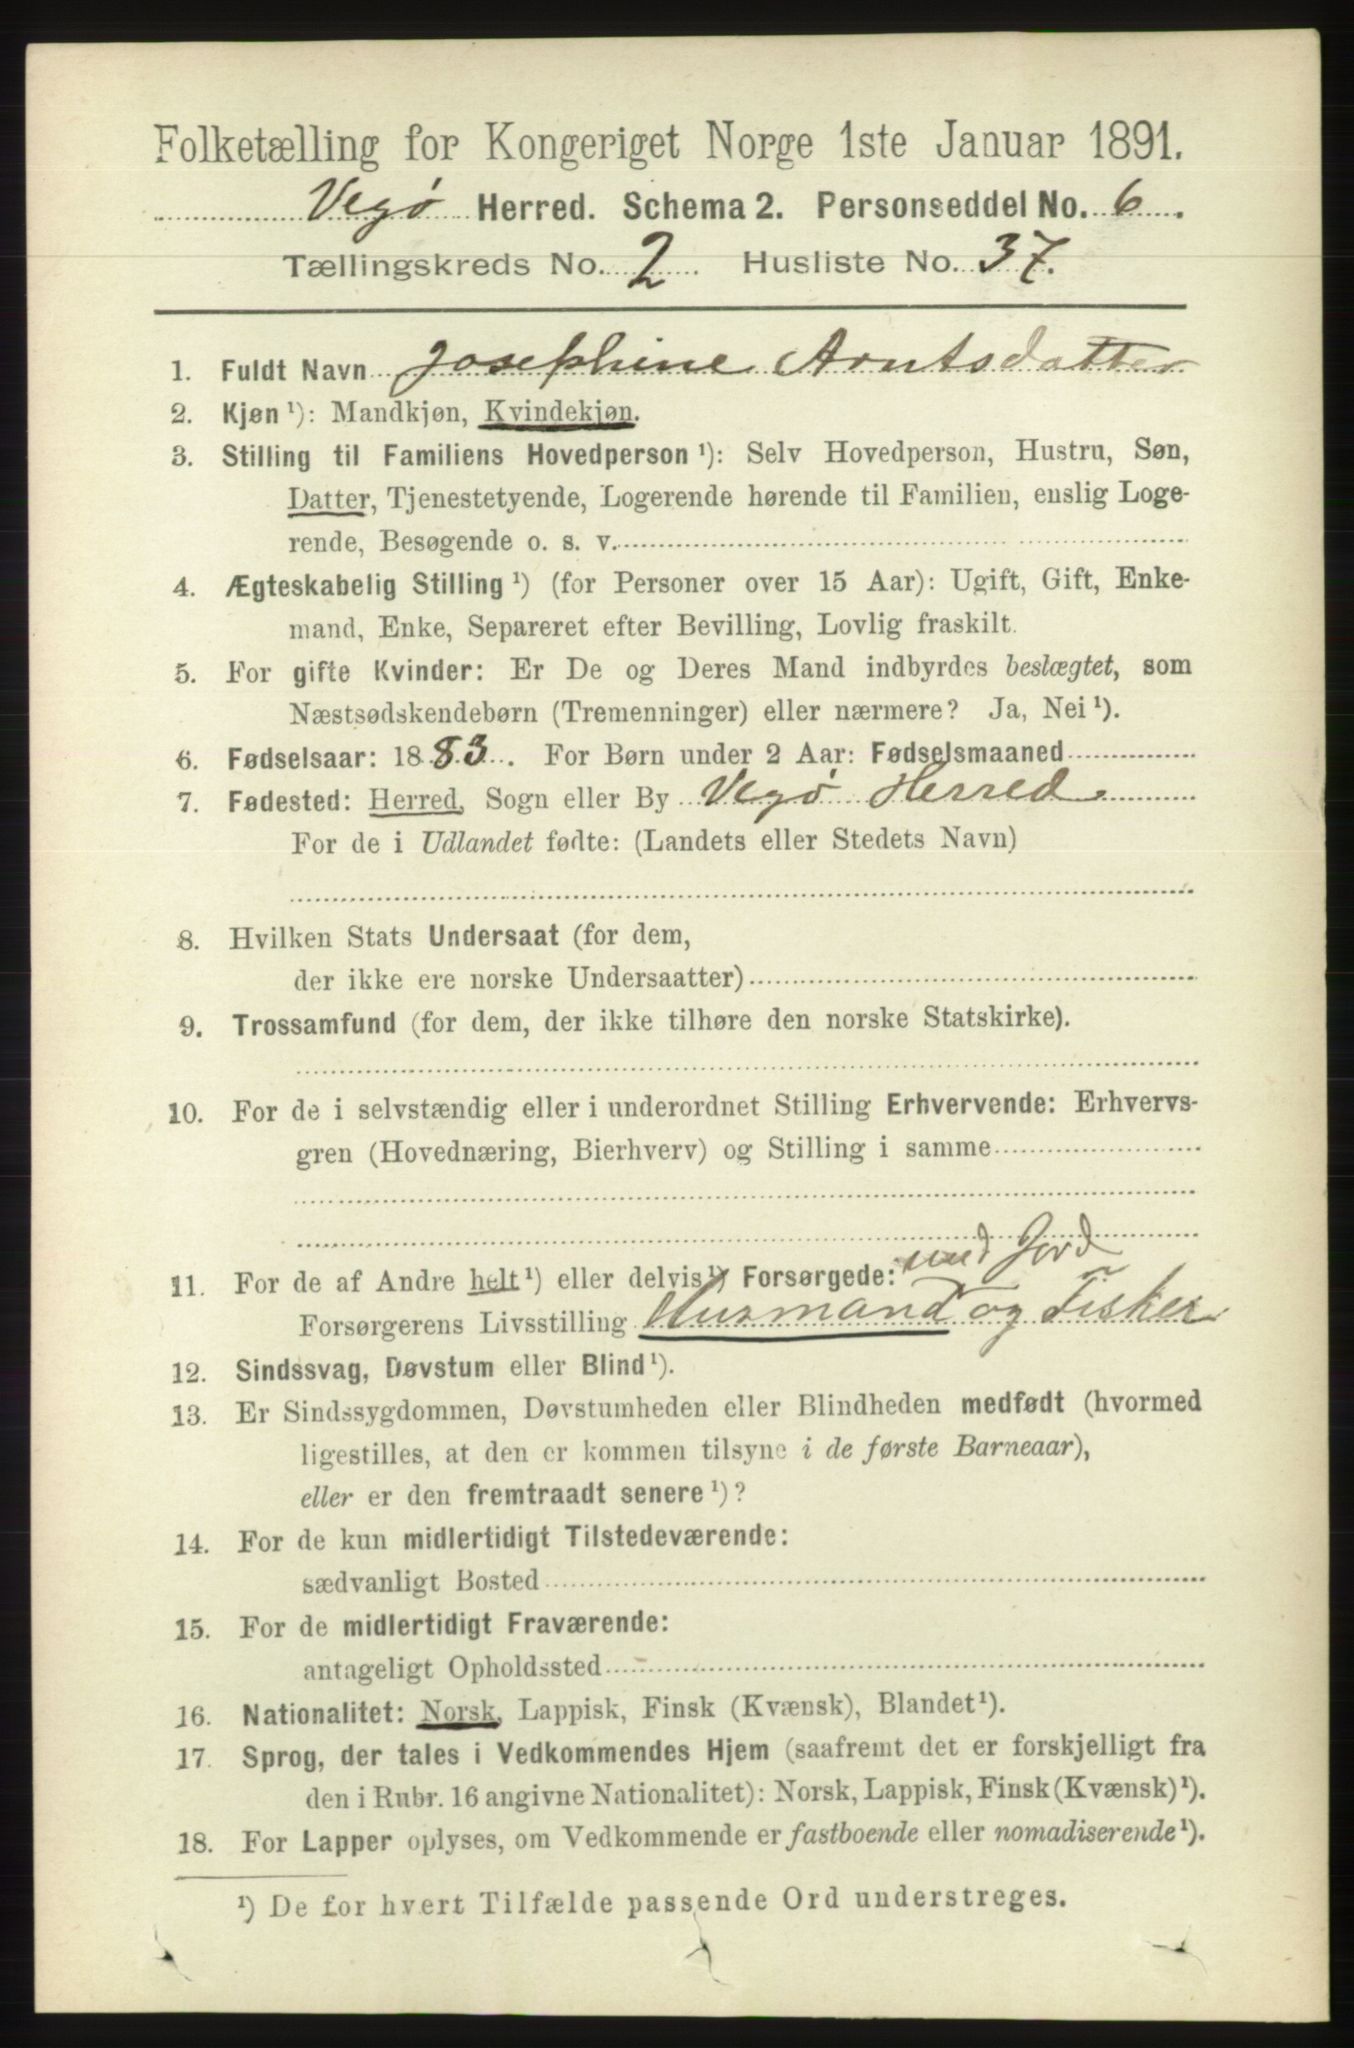 Folketælling for Kongeriget Norge 1ste Januar 1891.
Vegø Herred. Schema 2. Personseddel No. 6.
Tællingskreds No. 2 Husliste No. 37.
1. Fuldt Navn Josephine Arntsdatter
2. Kjøn ¹): Mandkjøn, Kvindekjøn.
3. Stilling til Familiens Hovedperson ¹): Selv Hovedperson, Hustru, Søn,
Datter, Tjenestetyende, Logerende hørende til Familien, enslig Loge-
rende, Besøgende o. s. v.
4. Ægteskabelig Stilling ¹) (for Personer over 15 Aar): Ugift, Gift, Enke-
mand, Enke, Separeret efter Bevilling, Lovlig fraskilt.
5. For gifte Kvinder: Er De og Deres Mand indbyrdes beslægtet, som
Næstsødskendebørn (Tremenninger) eller nærmere? Ja, Nei ¹).
6. Fødselsaar: 1883. For Børn under 2 Aar: Fødselsmaaned
7. Fødested: Herred, Sogn eller By Vegø Herred
For de i Udlandet fødte: (Landets eller Stedets Navn)
8. Hvilken Stats Undersaat (for dem,
der ikke ere norske Undersaatter)
9. Trossamfund (for dem, der ikke tilhøre den norske Statskirke).
10. For de i selvstændig eller i underordnet Stilling Erhvervende: Erhvervs-
gren (Hovednæring, Bierhverv) og Stilling i samme
med Jord
11. For de af Andre helt ¹) eller delvis ¹) Forsørgede:
Forsørgerens Livsstilling Husmand og Fisker
12. Sindssvag, Døvstum eller Blind ¹).
13. Er Sindssygdommen, Døvstumheden eller Blindheden medfødt (hvormed
ligestilles, at den er kommen tilsyne i de første Barneaar),
eller er den fremtraadt senere ¹)?
14. For de kun midlertidigt Tilstedeværende:
sædvanligt Bosted
15. For de midlertidigt Fraværende:
antageligt Opholdssted
16. Nationalitet: Norsk, Lappisk, Finsk (Kvænsk), Blandet ¹).
17. Sprog, der tales i Vedkommendes Hjem (saafremt det er forskjelligt fra
den i Rubr. 16 angivne Nationalitet): Norsk, Lappisk, Finsk (Kvænsk) ¹).
18. For Lapper oplyses, om Vedkommende er fastboende eller nomadiserende ¹).
¹) De for hvert Tilfælde passende Ord understreges.